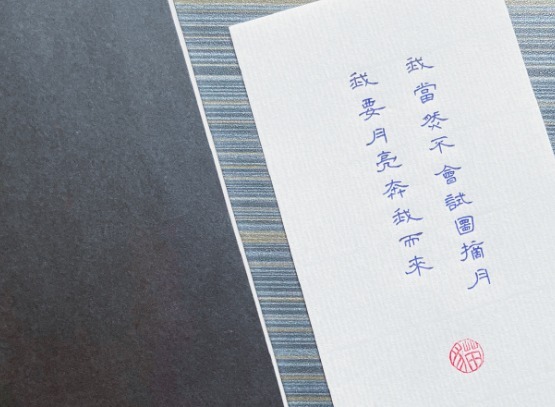 我當然不會試圖摘月
我要月亮奔我而來